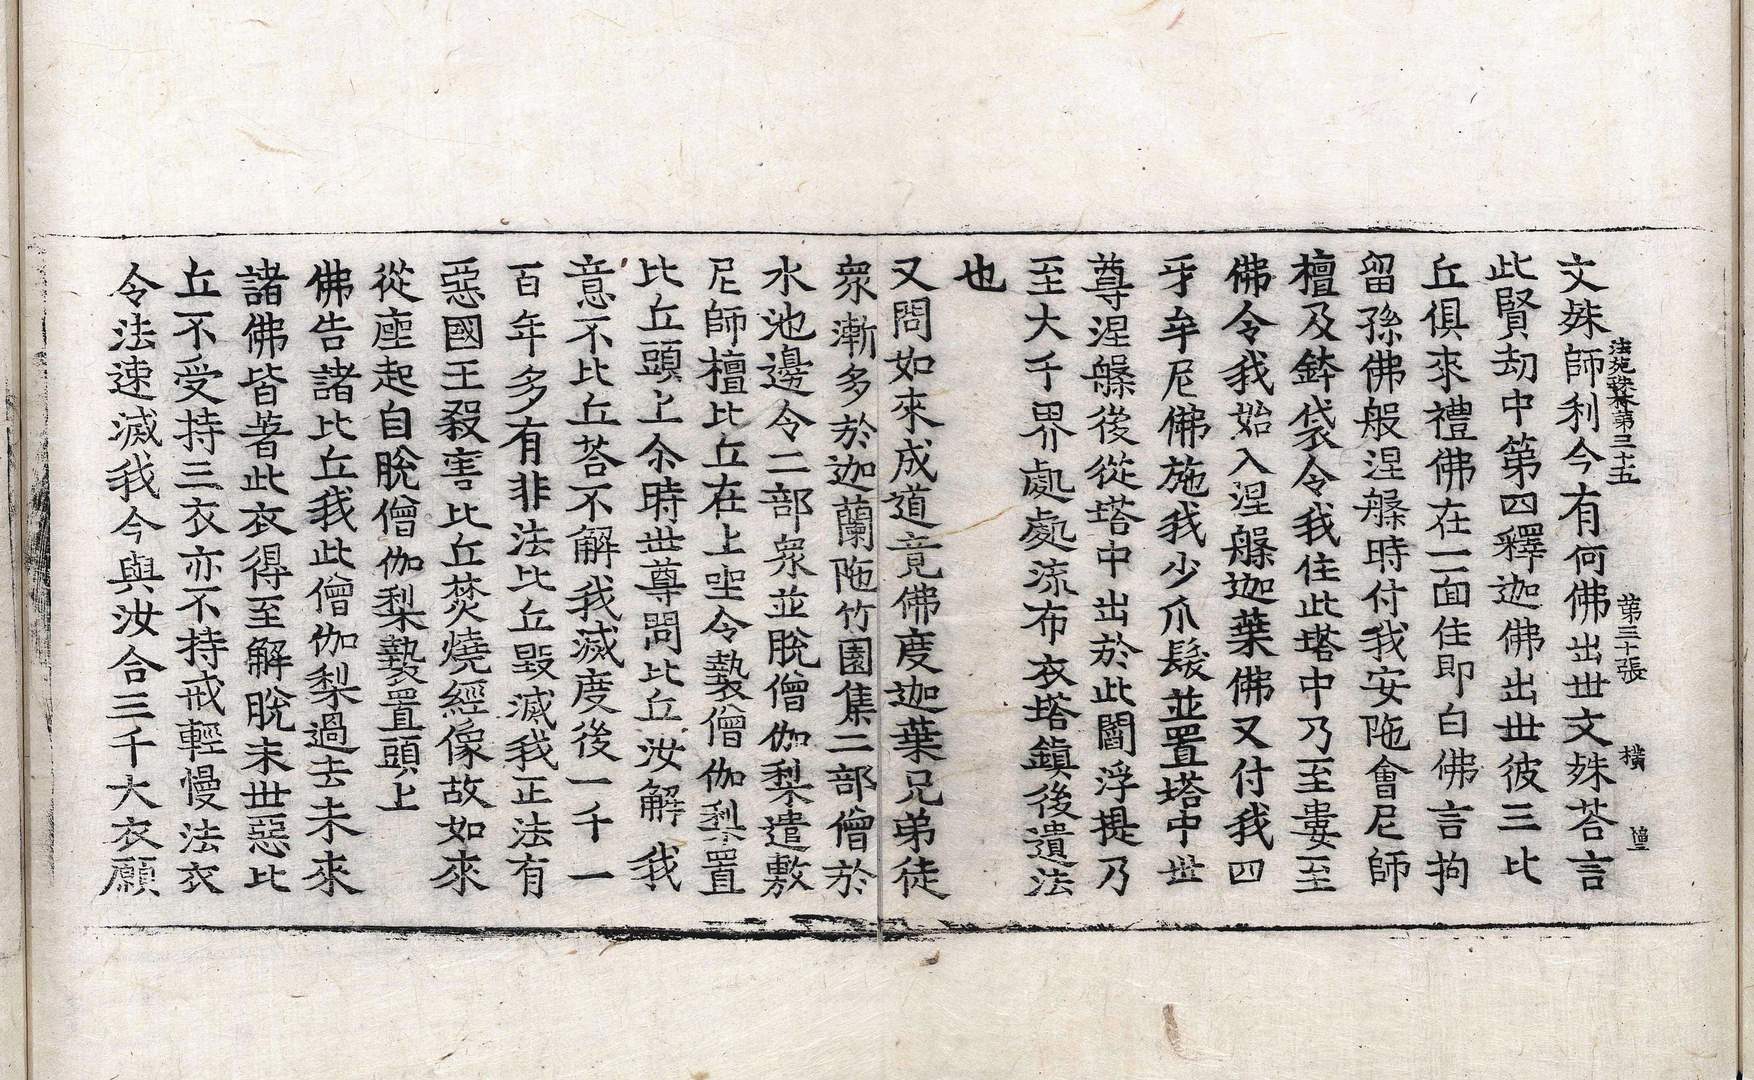 法苑珠林第三十五　第三十張　橫
文殊師利今有何佛出世文殊荅言
此賢劫中第四釋迦佛出世彼三比
丘俱來禮佛在一面住即白佛言拘
留孫佛般涅槃時付我安陁會尼師
檀及鉢袋令我住此塔中乃至婁至
佛令我始入涅槃迦葉佛又付我四
牙牟尼佛施我少爪髮並置塔中世
尊涅槃後從塔中出於此閻浮提乃
至大千界處處流布衣塔鎮後遺法
也
又問如來成道竟佛度迦葉兄弟徒
衆漸多於迦蘭陁竹園集二部僧於
水池邊令二部衆並脫僧伽梨遣敷
尼師檀比丘在上坐令褺僧伽梨置
比丘頭上尒時世尊問比丘汝解我
意不比丘荅不解我滅度後一千一
百年多有非法比丘毀滅我正法有
惡國王殺害比丘焚燒經像故如來
從座起自脫僧伽梨褺置頭上
佛告諸比丘我此僧伽梨過去未來
諸佛皆著此衣得至解脫末世惡比
丘不受持三衣亦不持戒輕慢法衣
令法速滅我今與汝合三千大衣願